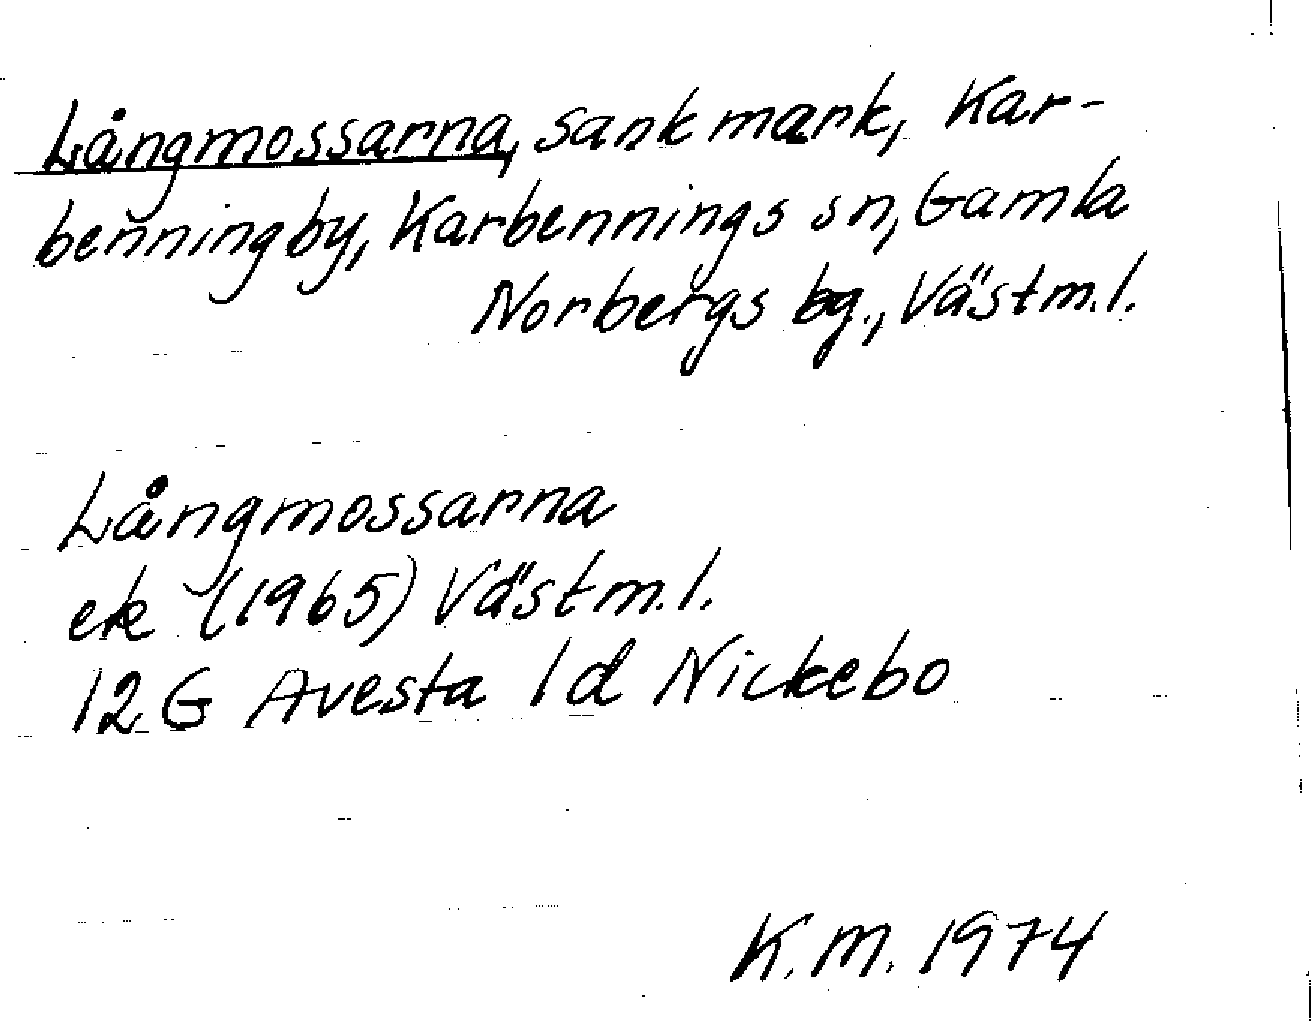 Långmossarna, sank mark, Kar-
benningby, Karbennings sn, Gamla
Norbergs bg., Västm.l.
Långmossarna
ek (1965) Västm.l.
12 G Avesta 1d Nickebo
K.M. 1974